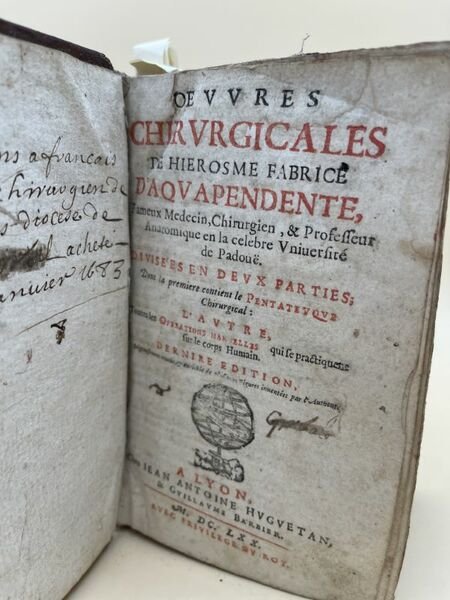 ns a francais
chirurgien de
s diocese de
achete
anvier 1683
OEVVRES
CHIRVRGICALES
DE HIEROSME FABRICE
D'AQVAPENDENTE,
Fameux Medecin, Chirurgien, & Professeur
Anatomique en la celebre Vniuersité
de Padouë.
DIVISE'ES EN DEVX PARTIES;
Dont la premiere contient le PENTATEVQVE
Chirurgical:
L'AVTRE,
Toutes les OPERATIONS MANVELLES qui se practiquent
sur le corps Humain.
DERNIRE EDITION,
figures inuentées par l'Autheur.
A LYON,
Chez IEAN ANTOINE HVGVETAN,
& GVILLAVME BARBIER.
M. DC. LXX.
AVEC PRIVILEGE DV ROY.